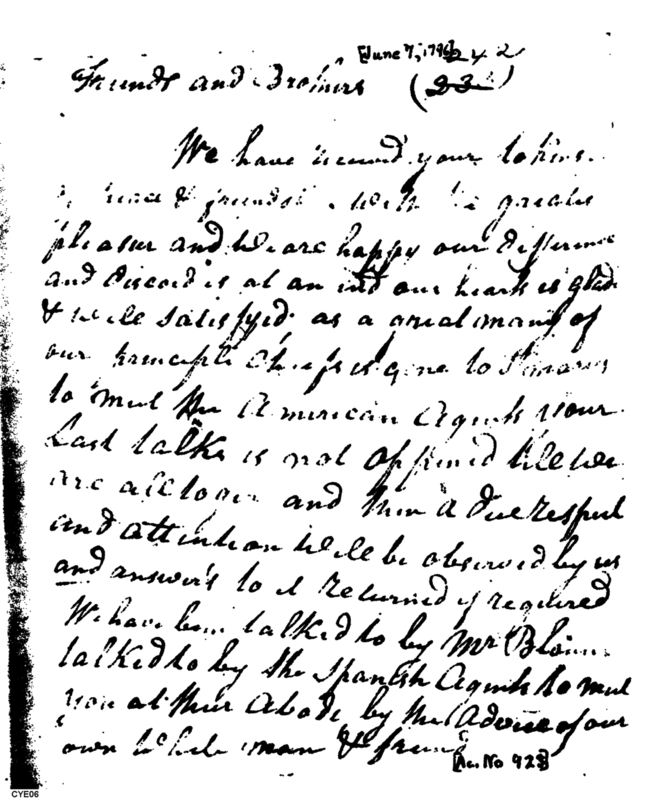 [June 7, 1796] 242
Friends and Brothers (232)
We have receved your tokins
peace & friendsh with the greates
pleasur and We are happy our differince
and discord is at an ind our hearts is glad
& well satisfyed as a great many of
our principle Chiefs is gone to St marys
to meet the American Agents your
Last talks is not oppined till we
are all togeer and then a due respect
and attention will be observed by us
and answers to it returned if required
We have been talked to by Mr Bloun
talked to by the Spanish Agents to meet
you at their Abode by the Advice of our
own White man & frend
[Ac. No 923]
CYE06